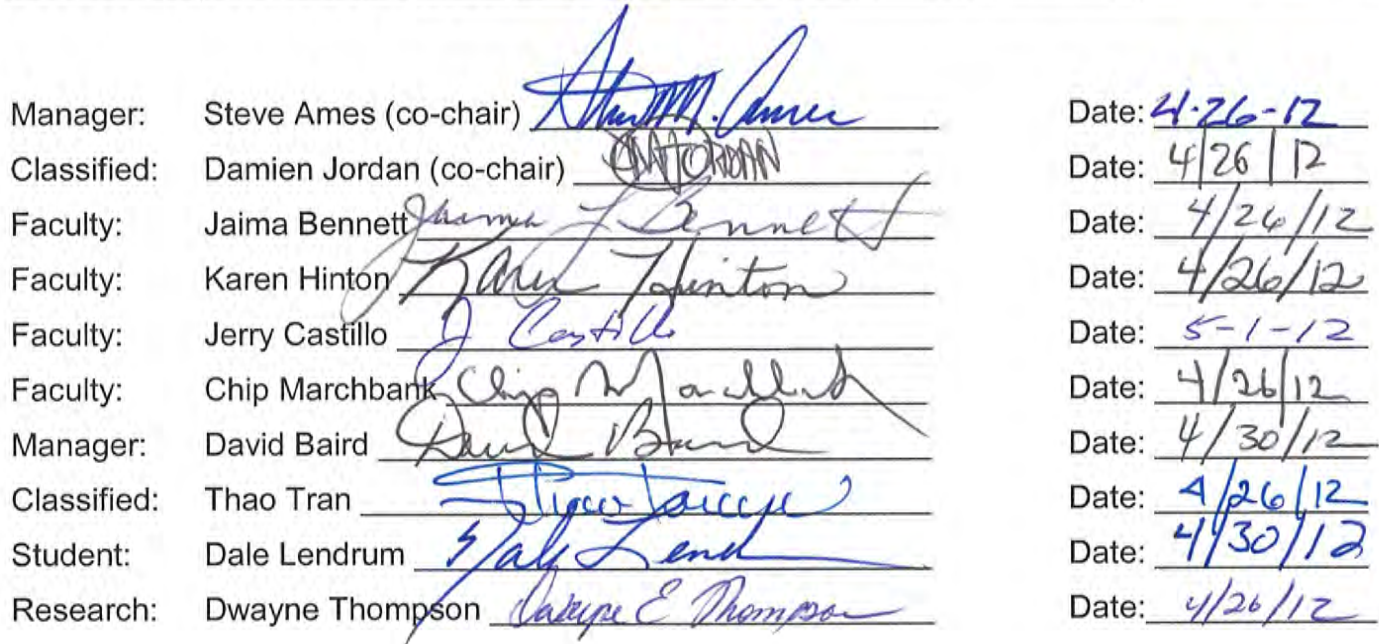 Manager: Steve Ames (co-chair) Date: 4-26-12
Classified: Damien Jordan (co-chair) DMJORDAN Date: 4/26/12
Faculty: Jaima Bennett Jaima L Bennett Date: 4/26/12
Faculty: Karen Hinton Karen Hinton Date: 4/26/12
Faculty: Jerry Castillo J Castillo Date: 5-1-12
Faculty: Chip Marchbank Chip Marchbank Date: 4/26/12
Manager: David Baird David Baird Date: 4/30/12
Classified: Thao Tran Date: 4/26/12
Student: Dale Lendrum Date: 4/30/12
Research: Dwayne Thompson Dwayne E Thompson Date: 4/26/12